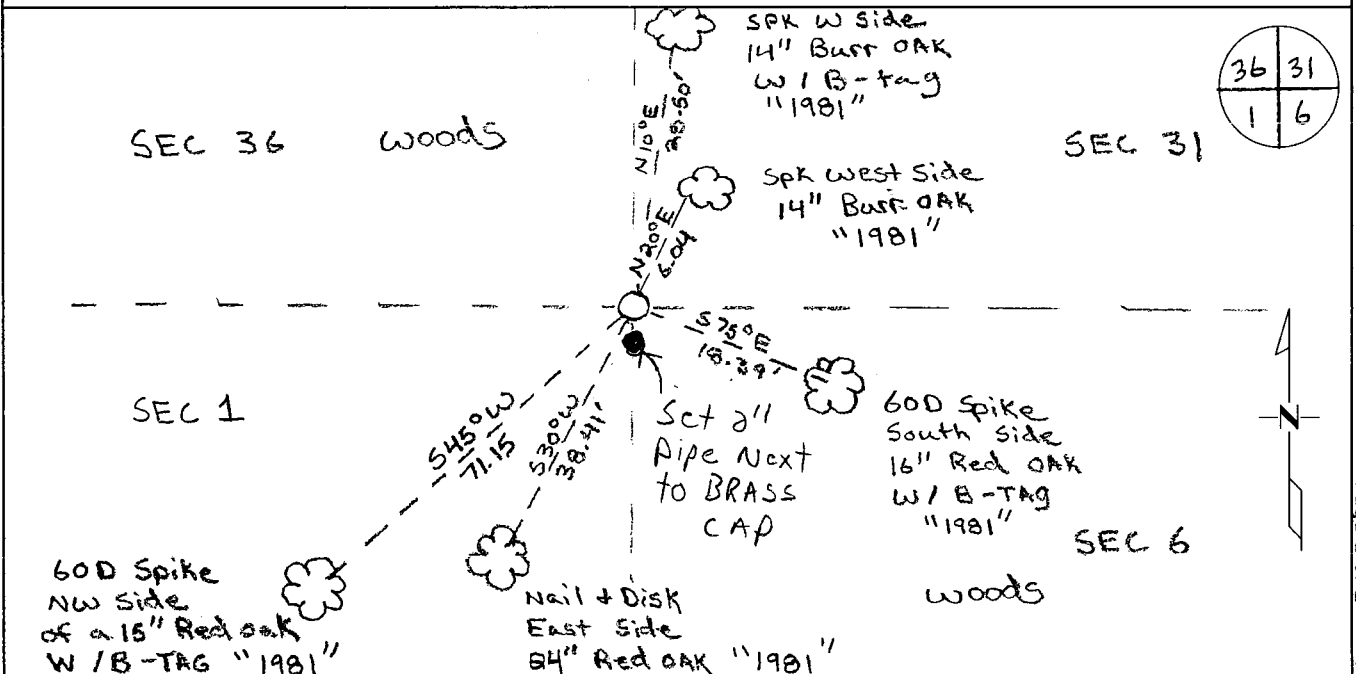 SPK W Side
14" Burr OAK
W / B-tag
"1981"
36 31
1 6
SEC 36 woods
SEC 31
N10°E
28.50'
Spk west Side
14" Burr OAK
"1981"
N20°E
6.04
S75°E
18.39'
SEC 1
S45°W
71.15
S30°W
38.41'
Set 2"
Pipe Next
to BRASS
CAP
60D Spike
South Side
16" Red OAK
W / B-TAg
"1981"
N
SEC 6
woods
60D Spike
NW Side
of a 15" Red oak
W / B-TAG "1981"
Nail + Disk
East Side
24" Red OAK "1981"